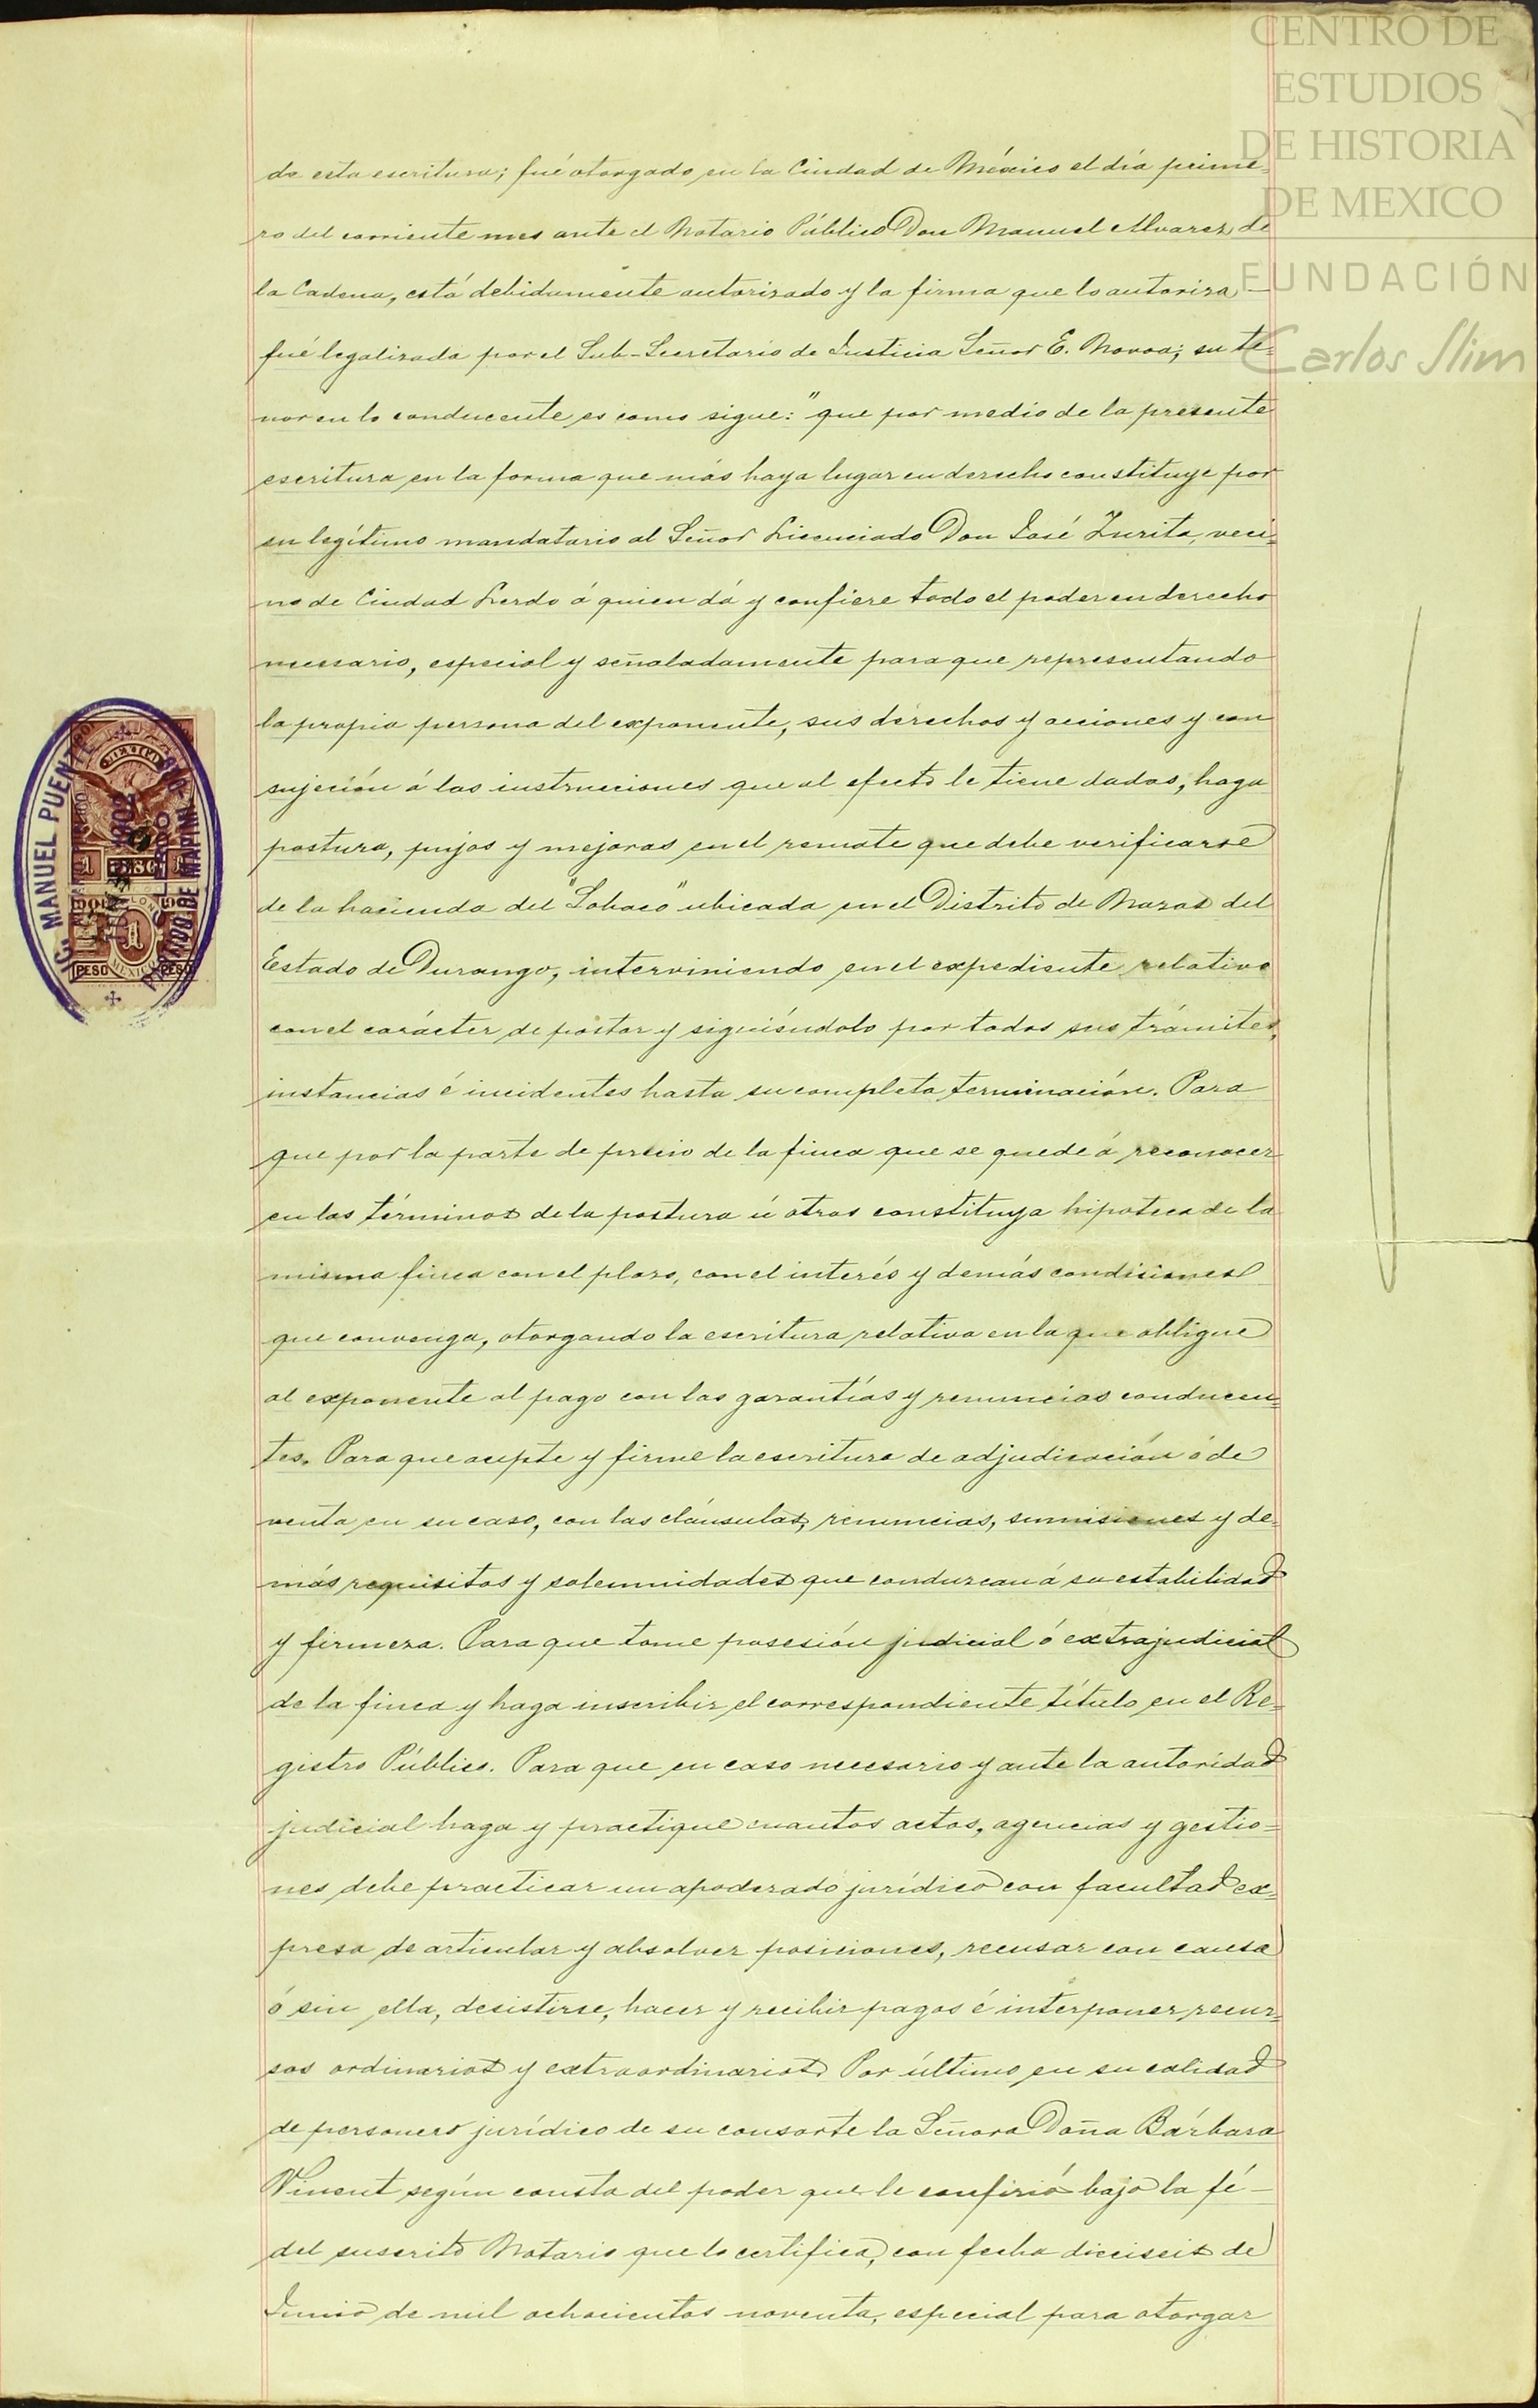 CENTRO DE
ESTUDIOS
DE HISTORIA
DE MEXICO
FUNDACIÓN
Carlos Slim
de esta escritura; fué otorgado en la Ciudad de México el día prime=
ro del corriente mes ante el Notario Público Don Manuel Alvarez de
la Cadena, está debidamente autorizado y la firma que lo autoriza -
fué legalizada por el Sub-Secretario de Justicia Señor E. Novoa; su te=
nor en lo conducente es como sigue: "que por medio de la presente
escritura en la forma que más haya lugar en derecho constituye por
su legítimo mandatario al Señor Licenciado Don José Zurita, veci=
no de Ciudad Lerdo á quien dá y confiere todo el poder en derecho
necesario, especial y señaladamente para que representando
la propia persona del exponente, sus derechos y acciones y con
sujeción á las instrucciones que al efecto le tiene dadas, haga
postura, pujas y mejoras en el remate que debe verificarse
de la hacienda del "Sobaco" ubicada en el Distrito de Nazas del
Estado de Durango, interviniendo en el expediente relativo
con el carácter de postor y siguiéndolo por todos sus trámites,
instancias é incidentes hasta su completa terminación. Para
que por la parte de precio de la finca que se quede á reconocer
en los términos de la postura ú otros constituya hipoteca de la
misma finca con el plazo, con el interés y demás condiciones
que convenga, otorgando la escritura relativa en la que obligue
al exponente al pago con las garantías y renuncias conducen=
tes. Para que acepte y firme la escritura de adjudicación ó de
venta en su caso, con las cláusulas, renuncias, sumisiones y de=
más requisitos y solemnidades que conduzcan á su estabilidad
y firmeza. Para que tome posesión judicial ó extrajudicial
de la finca y haga inscribir el correspondiente título en el Re=
gistro Público. Para que en caso necesario y ante la autoridad
judicial haga y practique cuantos actos, agencias y gestio=
nes debe practicar un apoderado jurídico con facultad ex=
presa de articular y absolver posiciones, recusar con causa
ó sin ella, desistirse, hacer y recibir pagos é interponer recur=
sos ordinarios y extraordinarios. Por último en su calidad
de personero jurídico de su consorte la Señora Doña Bárbara
Vinent según consta del poder que le confirió bajo la fé -
del suscrito Notario que lo certifica, con fecha dieciseis de
Junio de mil ochocientos noventa, especial para otorgar
MANUEL PUENTE
PARTIDO DE MAPIMI
MEXICO
1 PESO 1
1
PESO MEXICO PESO